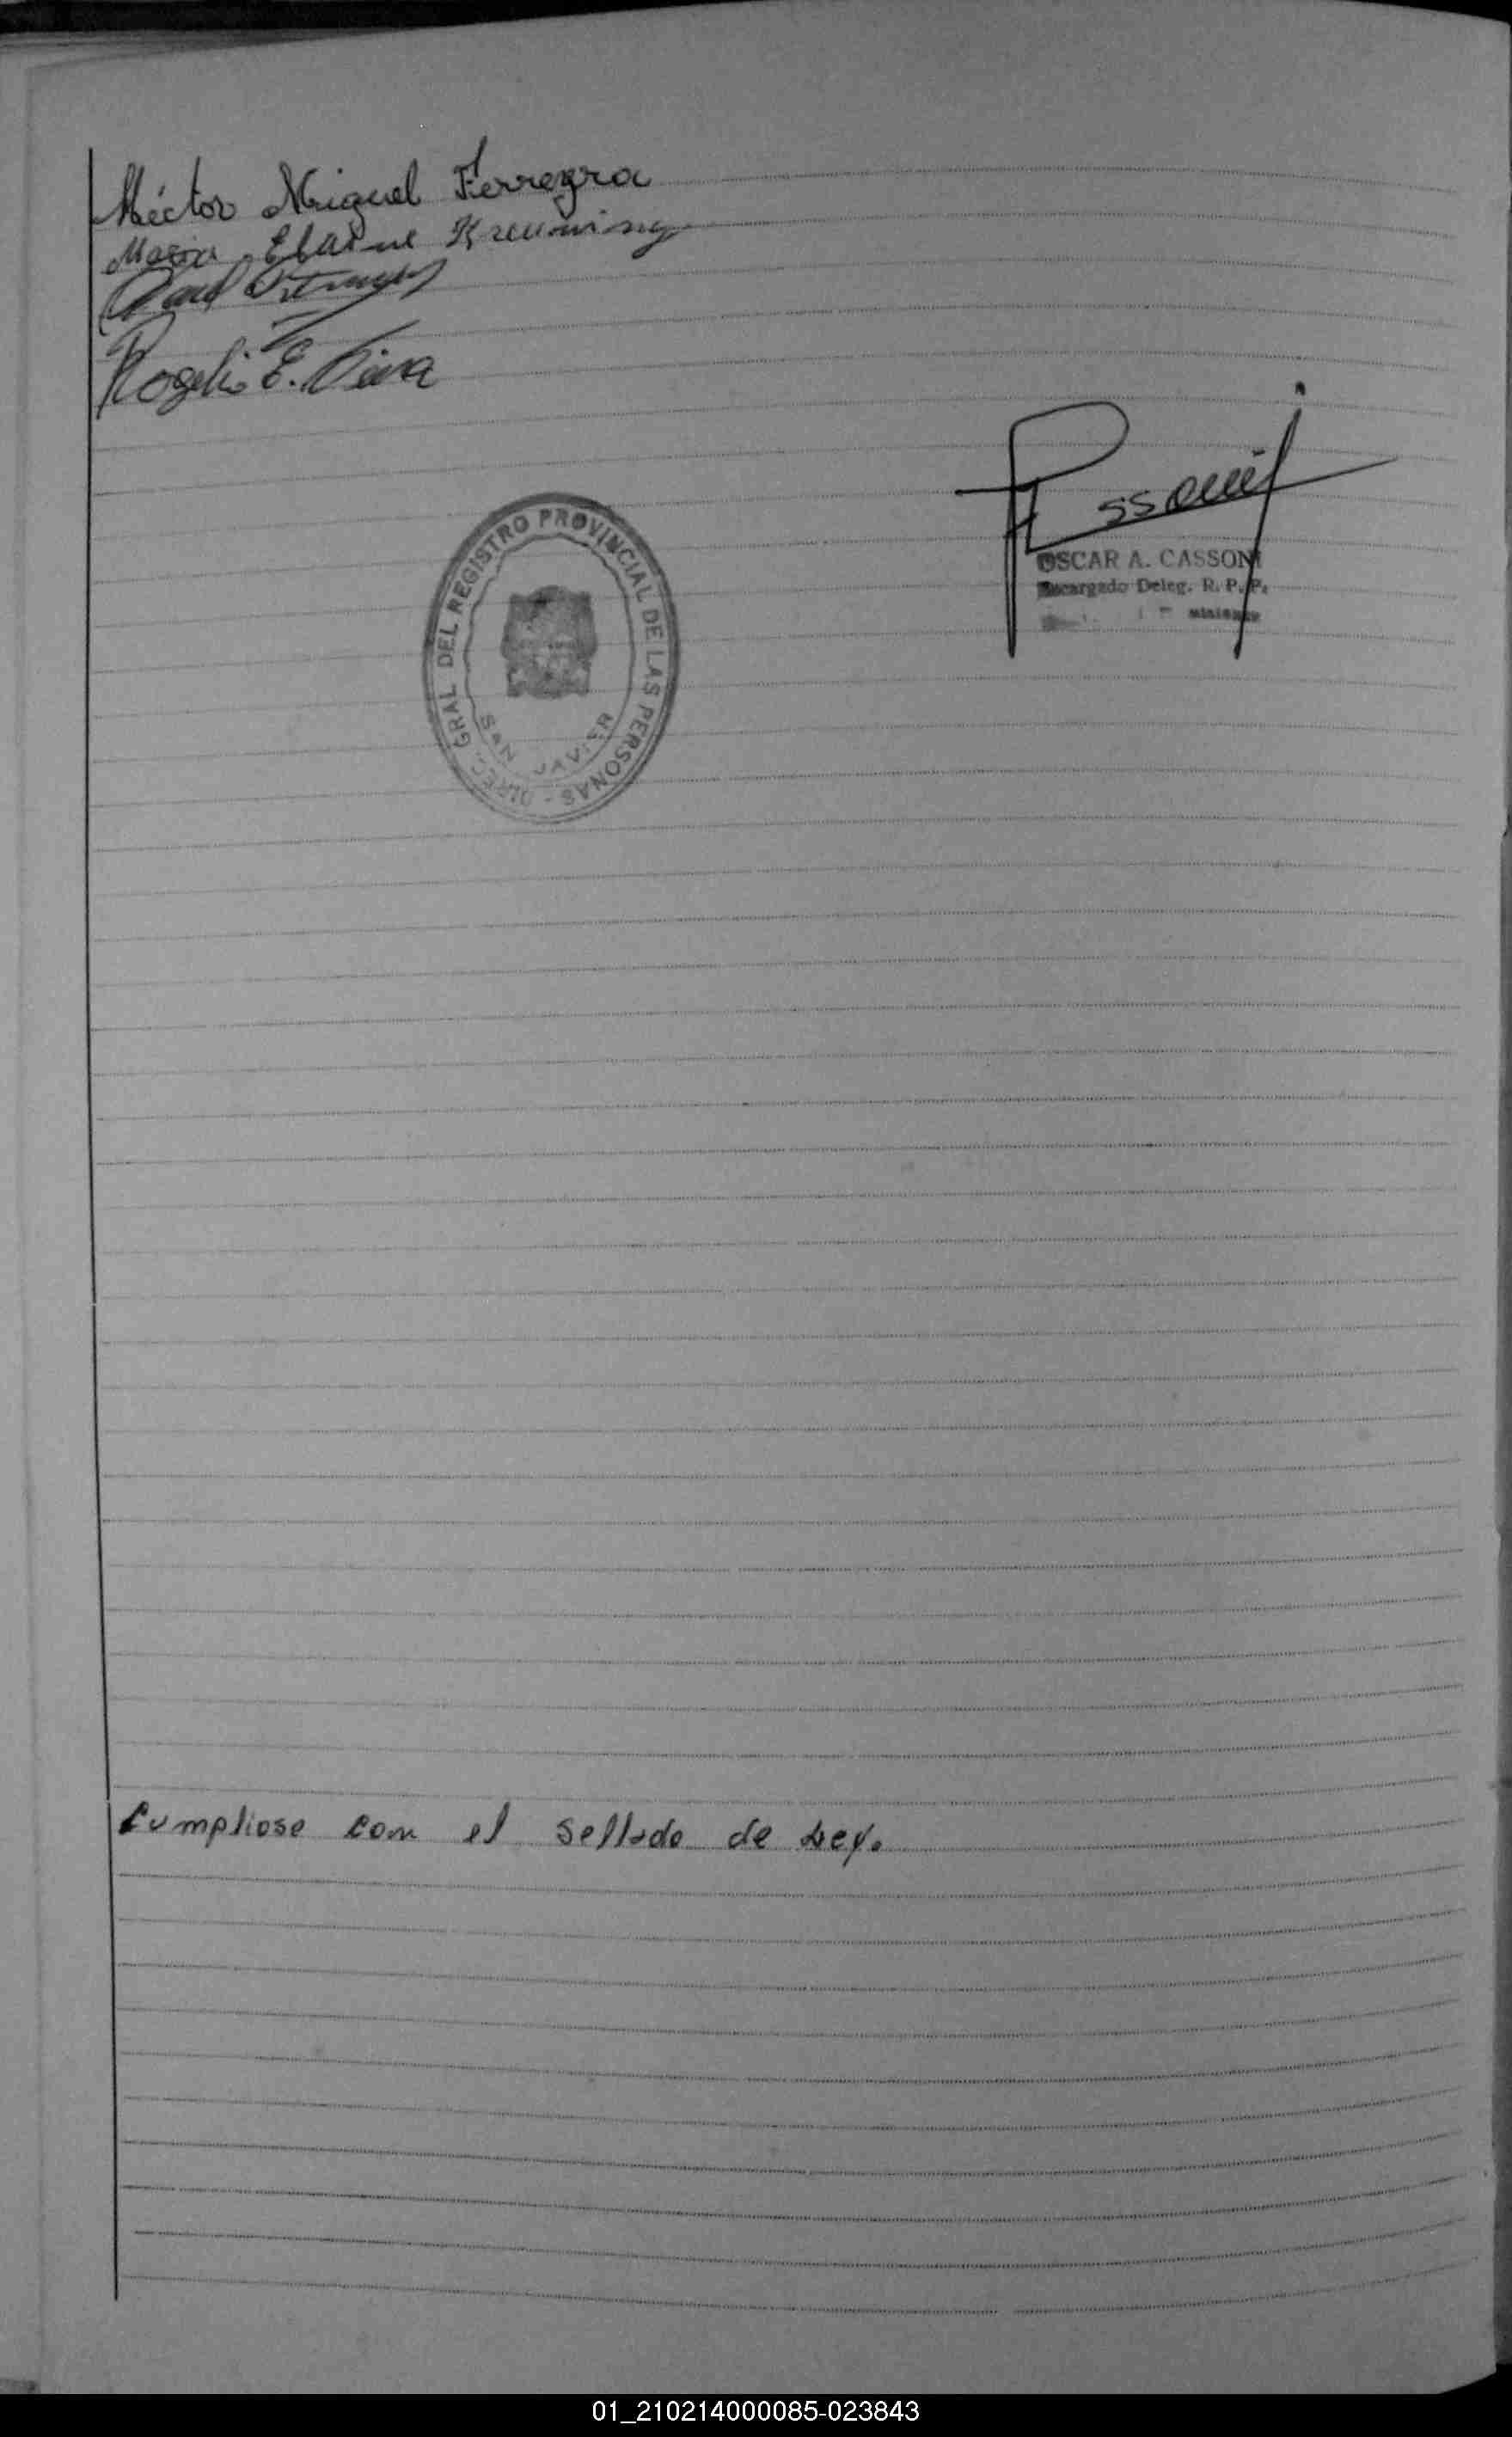 Héctor Miguel Ferreyra
Maria Elaine Kreuning
Rogelio E. Viera
OSCAR A. CASSONI
Encargado Deleg. R. P. P.
DIREC. GRAL DEL REGISTRO PROVINCIAL DE LAS PERSONAS -
SAN JAVIER
Cumpliose con el sellado de Ley.
01_210214000085-023843